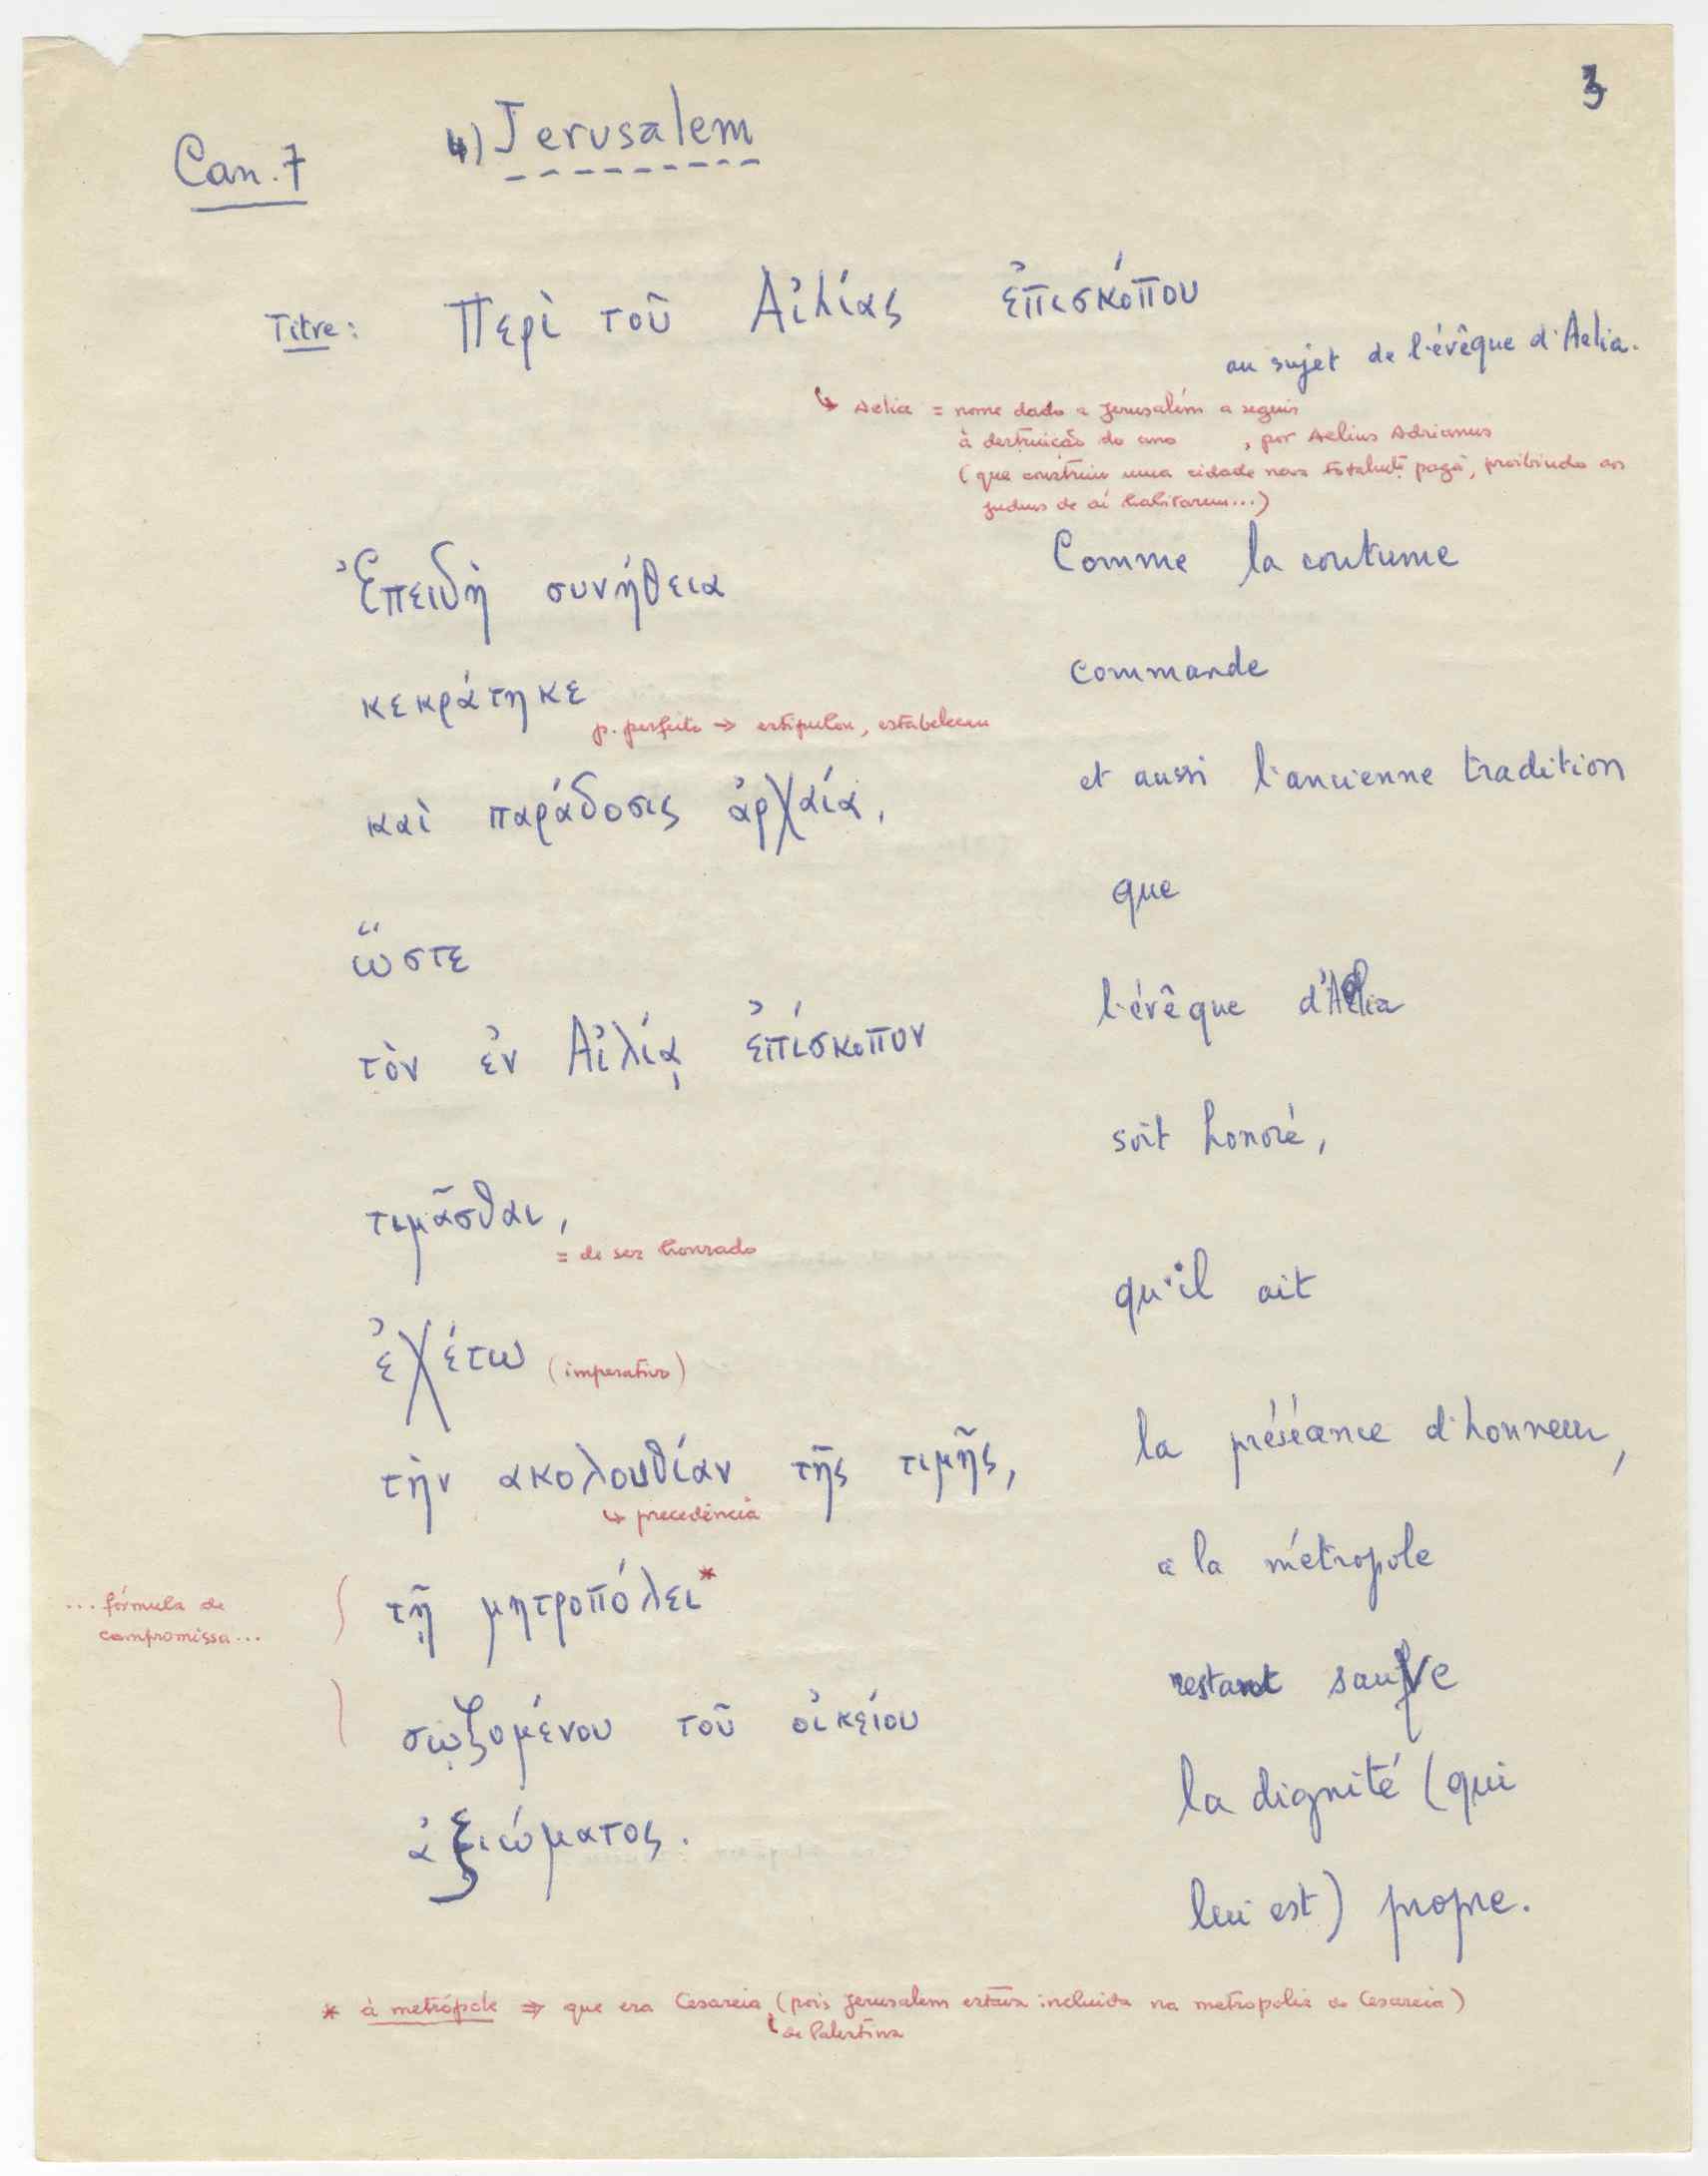 3
Can. 7 4) Jerusalem
Titre: Περὶ τοῦ Αἰλίας ἐπισκόπου
au sujet de l'évêque d'Aelia.
↳ Aelia = nome dado a Jerusalém a seguir
à destruição do ano , por Aelius Adrianus
(que construiu uma cidade nova totalmte pagã, proibindo aos
judeus de aí habitarem...)
Ἐπειδὴ συνήθεια Comme la coutume
κεκράτηκε commande
p. perfeito → estipulou, estabeleceu
καὶ παράδοσις ἀρχαία, et aussi l'ancienne tradition
ὥστε que
τὸν ἐν Αἰλίᾳ ἐπίσκοπον l'évêque d'Aelia
τιμᾶσθαι, soit honoré,
= de ser honrado
ἐχέτω (imperativo) qu'il ait
τὴν ακολουθίαν τῆς τιμῆς, la préséance d'honneur,
↳ precedência
τῇ μητροπόλει* a la métropole
... fórmula de
compromissa...
σῳζομένου τοῦ οἰκείου restant sauve
ἀξιώματος. la dignité (qui
lui est) propre.
* à metrópole ⇒ que era Cesareia (pois Jerusalem estava incluida na metropolia de Cesareia)
de Palestina